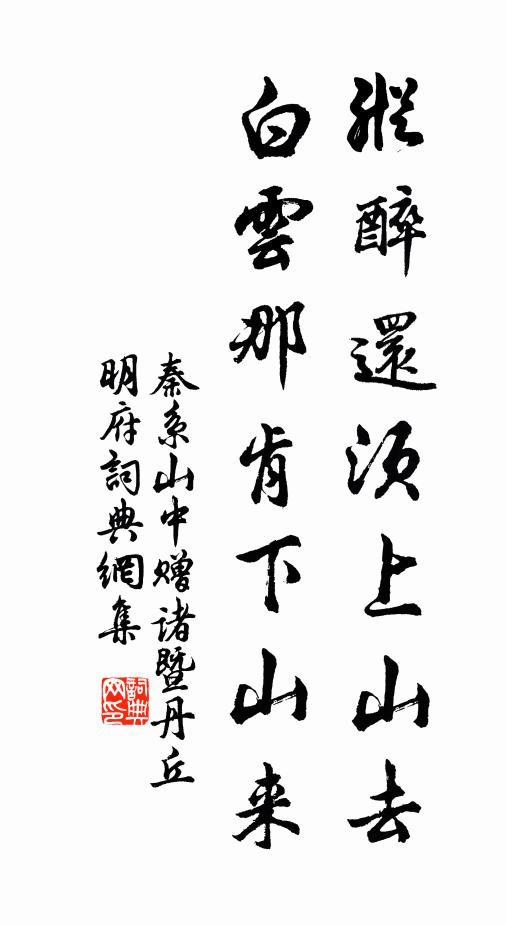 縱醉還須上山去
白雲那肯下山来
秦系山中赠诸暨丹丘
明府詞典網集
詞典
网印